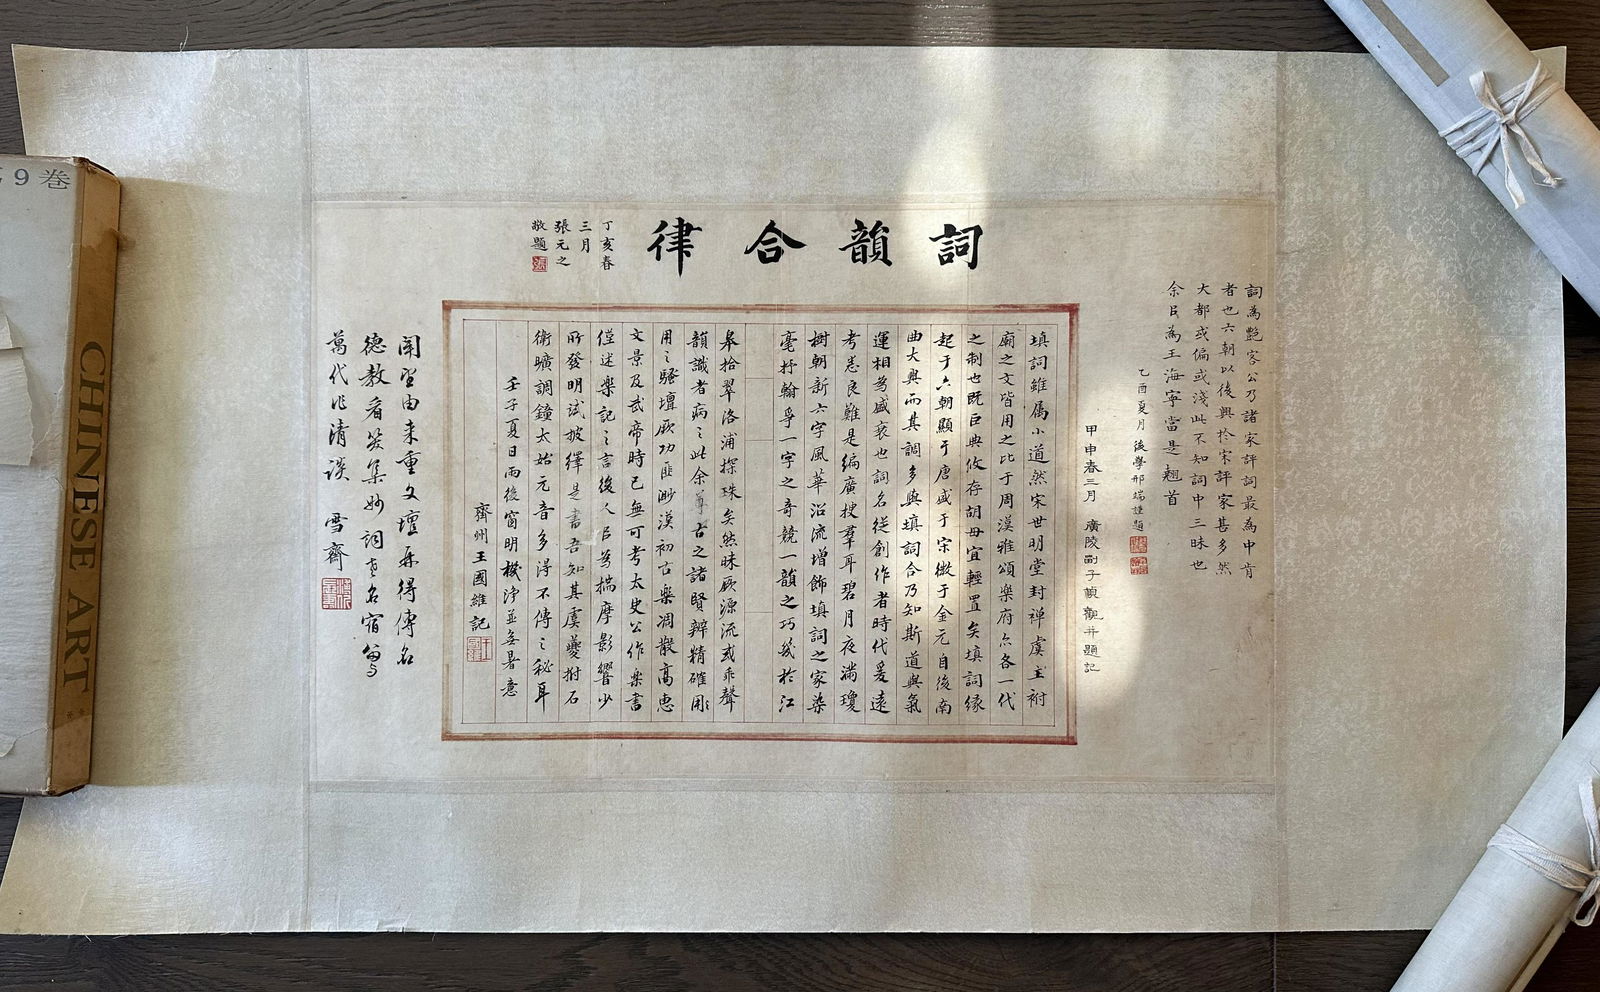 詞韻合律
丁亥春
三月
張元之
敬題
詞為艷客公乃諸家評詞最為中肯
者也六朝以後興於宋評家甚多然
大都或偏或淺此不知詞中三昧也
余㠯為王海寧當是翹首
乙酉夏月後學邢端謹題
甲申春三月廣陵副子觀并題記
填詞雖属小道然宋世明堂封禅虞主祔
廟之文皆用之比于周漢雅頌樂府亦各一代
之制也既巨典攸存胡毋宜輕置矣填詞緣
起于六朝顯于唐盛于宗微于金元自後南
曲大興而其調多與填詞合乃知斯道與氣
運相為盛衰也詞名從創作者時代爰遠
考悉良難是編廣搜羣耳碧月夜滿瓊
樹朝新六字風華沿流增飾填詞之家染
毫抒翰乎一字之奇競一韻之巧或於江
皋拾翠洛浦探珠矣然昧厥源流或乖聲
韻識者病之此余尊古之諸賢辨精確用
用之騷壇厥功匪渺漢初古樂凋散高惠
文景及武帝時已無可考太史公作樂書
僅述樂記之言後人㠯為揣摩影響少
所發明試披繹是書吾知其虞夔拊石
衛曠調鐘太始元音多得不傳之秘耳
壬子夏日雨後窗明機淨並無暑意
齊州王國維記
聞望由来重文壇再得傳名
德教看英集妙詞玄名宿
萬代作清談 雪齋
9巻
CHINESE ART